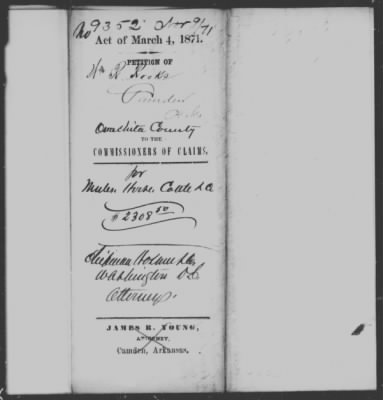 No 9352 Nov 9/71
Act of March 4, 1871.
PETITION OF
Wm R. Rooks
Camden
Arks
Ouachita County
TO THE
COMMISSIONERS OF CLAIMS.
for
Mules Horse Cattle &c
$2308 50
Washington DC
Attorneys.
JAMES R. YOUNG,
ATTORNEY,
Camden, Arkansas.